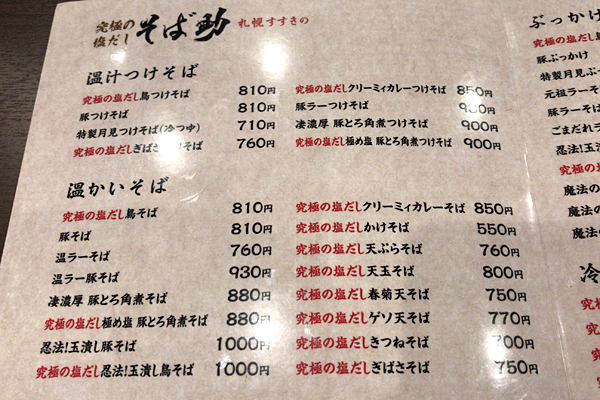 究極の塩だし そば助 札幌すすきの
温汁つけそば
究極の塩だし鳥つけそば 810円
豚つけそば 810円
特製月見つけそば(冷つゆ) 710円
究極の塩だしぎばさ けそば 760円
究極の塩だしクリーミィカレーつけそば 850円
豚ラーつけそば 930円
凄濃厚 豚とろ角煮つけそば 900円
究極の塩だし極め塩 豚とろ角煮つけそば 900円
温かいそば
究極の塩だし鳥そば 810円
豚そば 810円
温ラーそば 760円
温ラー豚そば 930円
凄濃厚 豚とろ角煮そば 880円
究極の塩だし極め塩 豚とろ角煮そば 880円
忍法!玉潰し豚そば 1000円
究極の塩だし忍法!玉潰し鳥そば 1000円
究極の塩だしクリーミィカレーそば 850円
究極の塩だしかけそば 550円
究極の塩だし天ぷらそば 760円
究極の塩だし天玉そば 800円
究極の塩だし春菊天そば 750円
究極の塩だしゲソ天そば 770円
究極の塩だしきつねそば 700円
究極の塩だしぎばさそば 750円
ぶっかけ
究極の塩だし
豚ぶっかけ
特製月見ぶ
元祖ラーそ
豚ラーそば
ごまだれラ
忍法!玉
究極の塩
魔法の
魔法の
魔法
冷
究極
究極
究極の
究極の